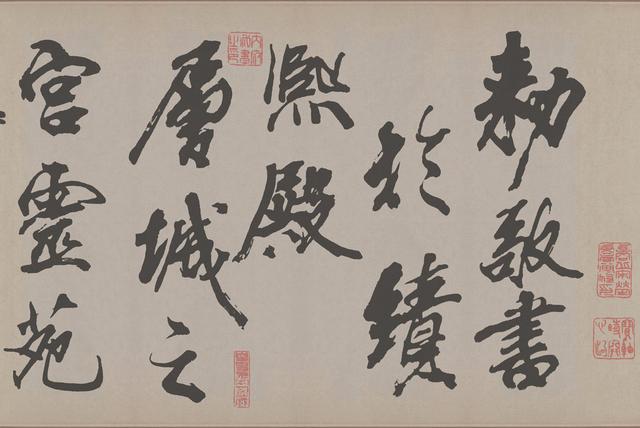 勅敬書
於績
熙殿
層城之
宮靈苑